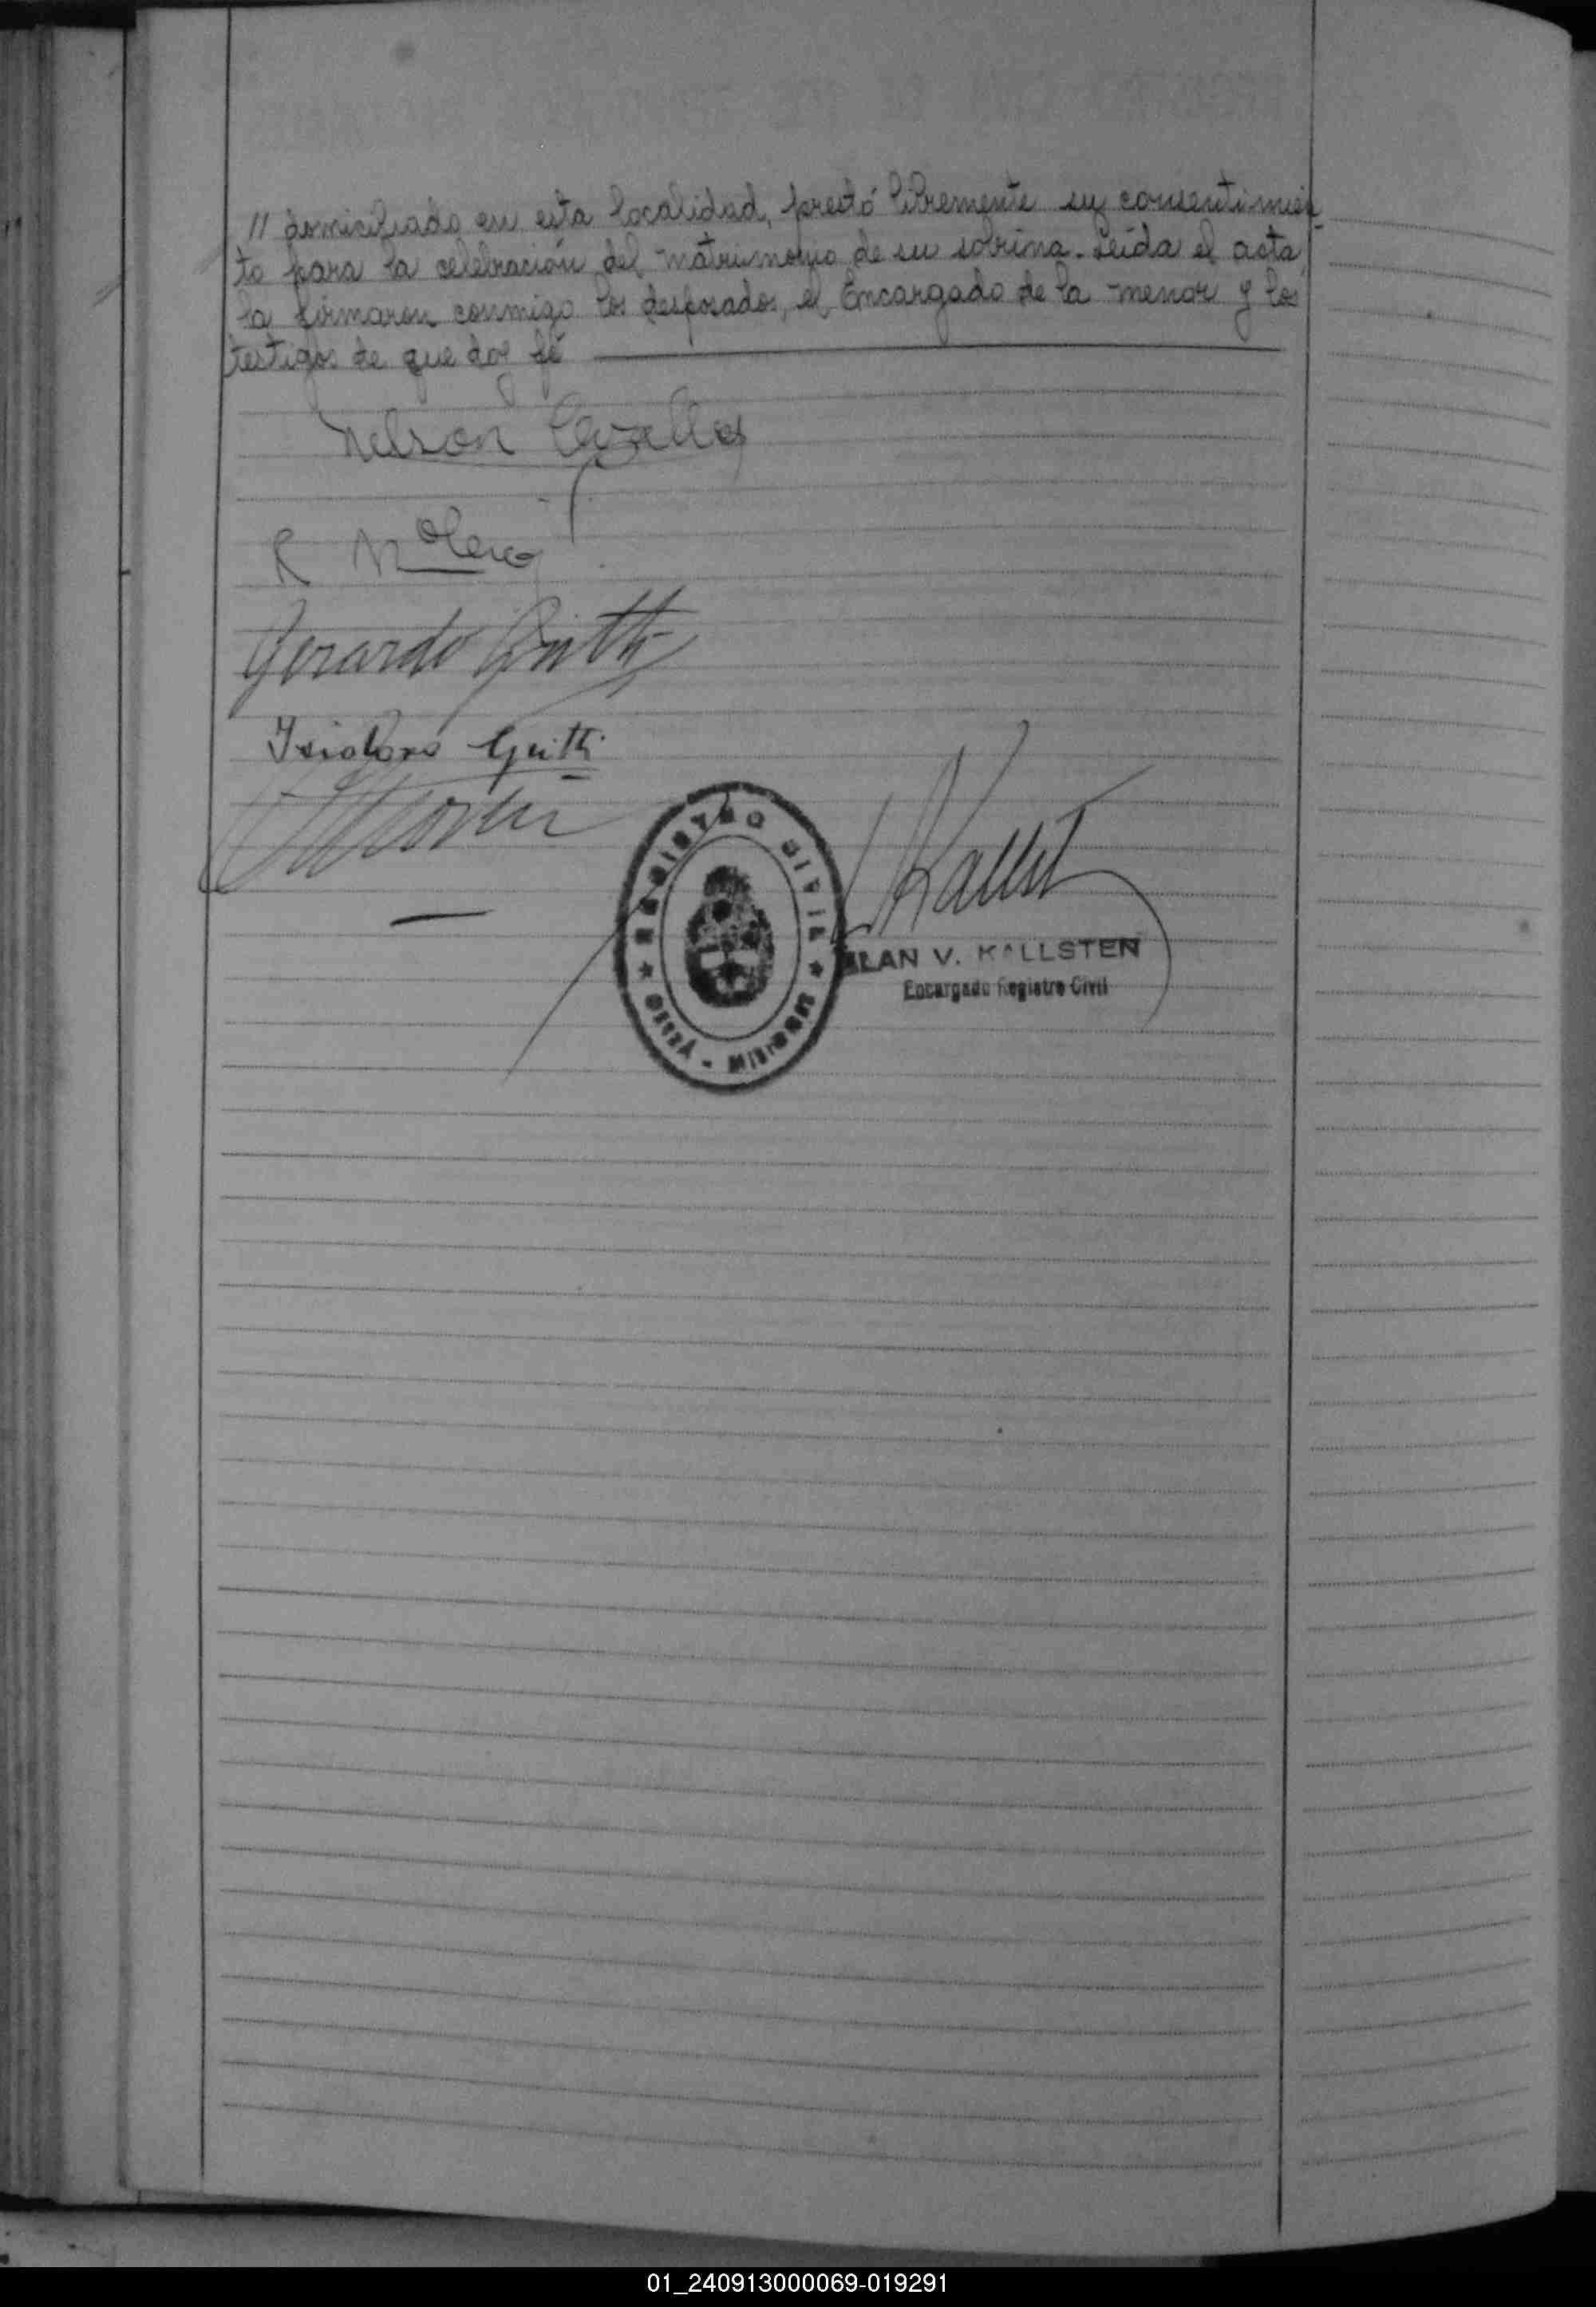 // domiciliado en esta localidad, prestó libremente su consentimien-
to para la celebración del matrimonio de su sobrina. Leída el acta,
la firmaron conmigo los desposados, el Encargado de la menor y los
testigos de que doy fé
Nelson
R
Gerardo
Isidoro
REGISTRO CIVIL
MISIONES
Kallst
ALAN V. KALLSTEN
Encargado Registro Civil
01_240913000069-019291